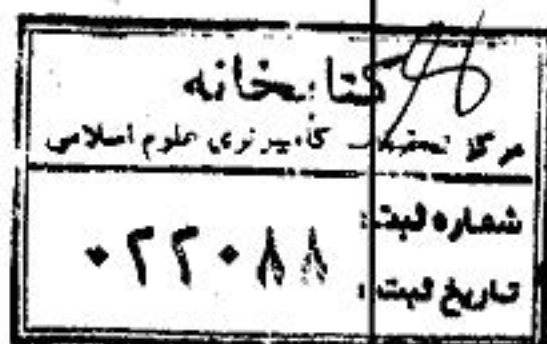 کتابخانه
مرکز تحقیقات کامپیوتری علوم اسلامی
شماره ثبت:
۰۲۲۰۸۸
تاریخ ثبت: